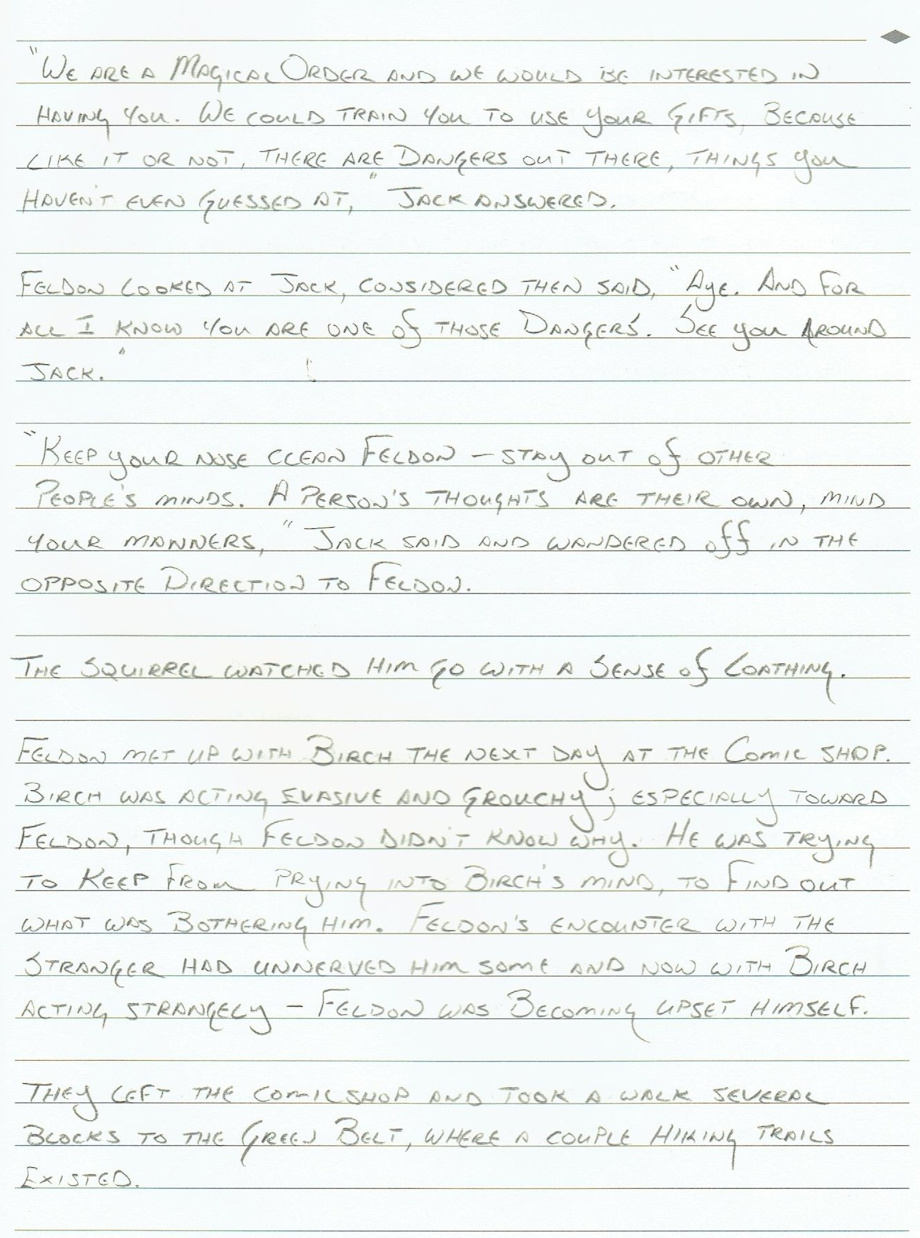 "We are a Magical Order and we would be interested in
having you. We could train you to use your Gifts, Because
like it or not, there are Dangers out there, things you
haven't even guessed at," Jack answered.
Feldon looked at Jack, considered then said, "Aye. And for
all I know you are one of those Dangers. See you Around
Jack."
"Keep your nose clean Feldon – stay out of other
People's minds. A person's thoughts are their own, mind
your manners," Jack said and wandered off in the
opposite Direction to Feldon.
The squirrel watched him go with a Sense of Loathing.
Feldon met up with Birch the next day at the Comic shop.
Birch was acting evasive and grouchy; especially toward
Feldon, though Feldon didn't know why. He was trying
to Keep from prying into Birch's mind, to Find out
what was Bothering Him. Feldon's encounter with the
Stranger had unnerved Him some and now with Birch
acting strangely – Feldon was Becoming upset Himself.
They left the comic shop and took a walk several
Blocks to the Green Belt, where a couple Hiking trails
Existed.